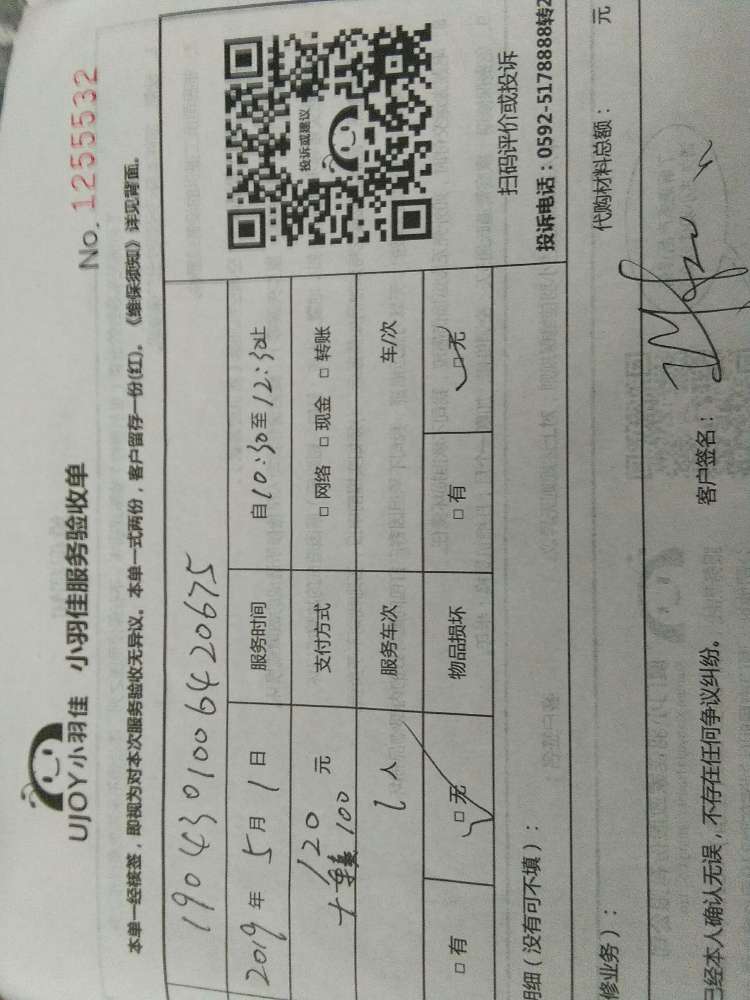 UJOY小羽佳 小羽佳服务验收单
No. 1255532
本单一经核签，即视为对本次服务验收无异议。本单一式两份，客户留存一份(红)。《维保须知》详见背面。
1904301006420675
2019年 5月 1日 服务时间 自10:30至12:30止
120
元 支付方式 □ 网络 □ 现金 □ 转账
100
1人 服务车次 车/次
□ 有 □ 无 物品损坏 □ 有 □ 无
投诉或建议
扫码评价或投诉
投诉电话：0592-5178888转2
明细（没有可不填）：
修业务）： 代购材料总额： 元
已经本人确认无误，不存在任何争议纠纷。 客户签名：